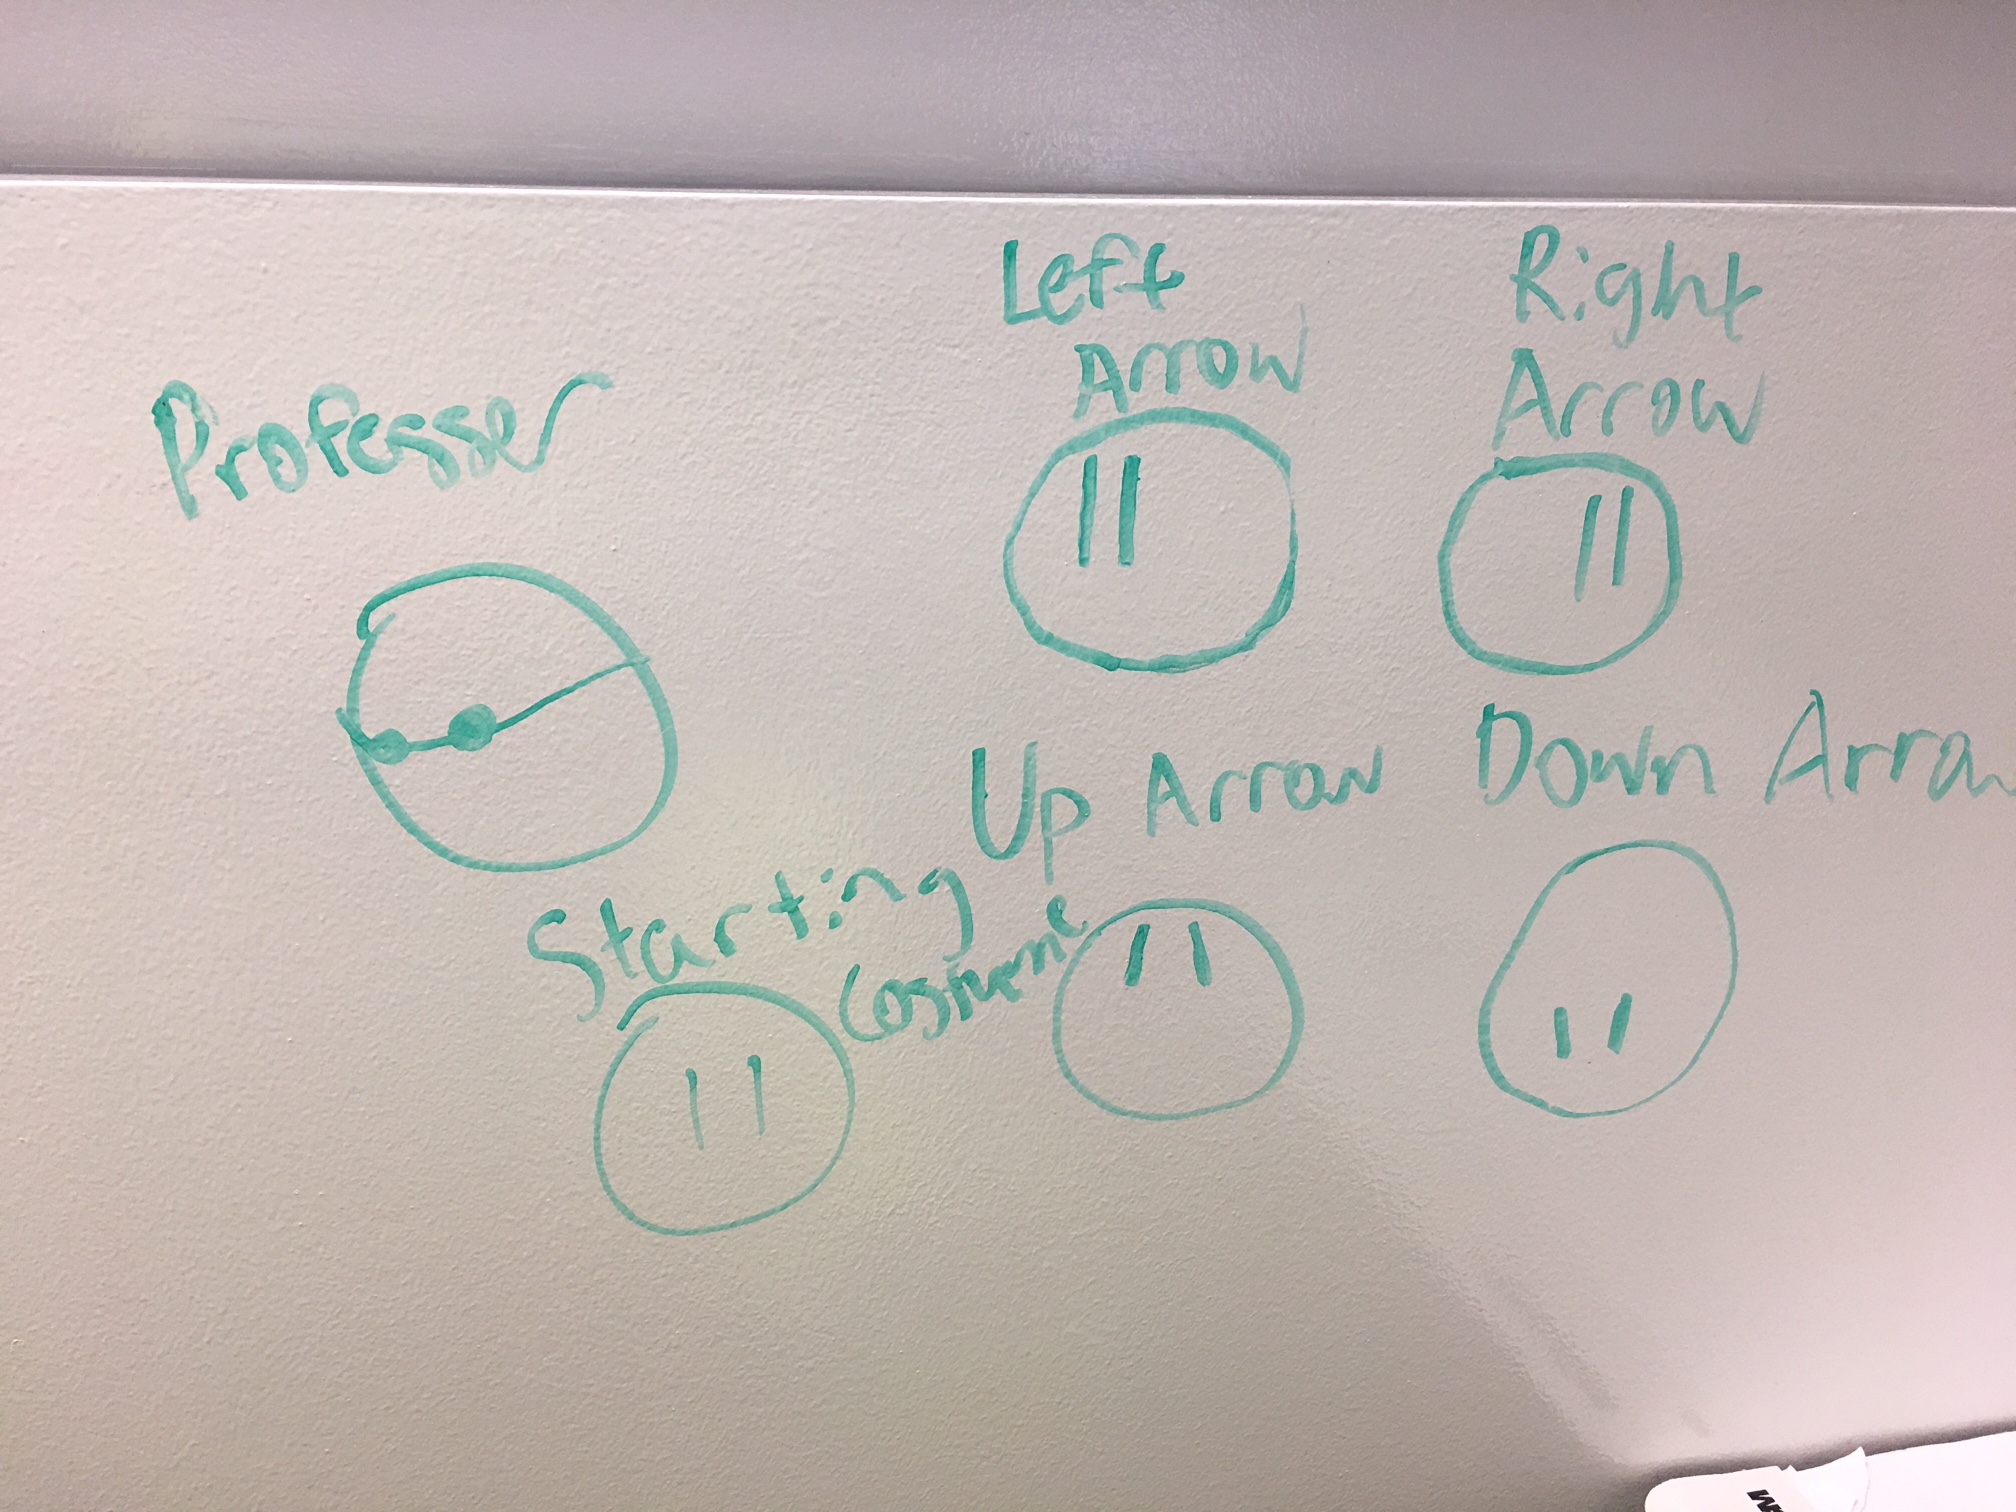 Professer
Left
Arrow
Right
Arrow
Up Arrow
Down Arrow
Starting
Costume